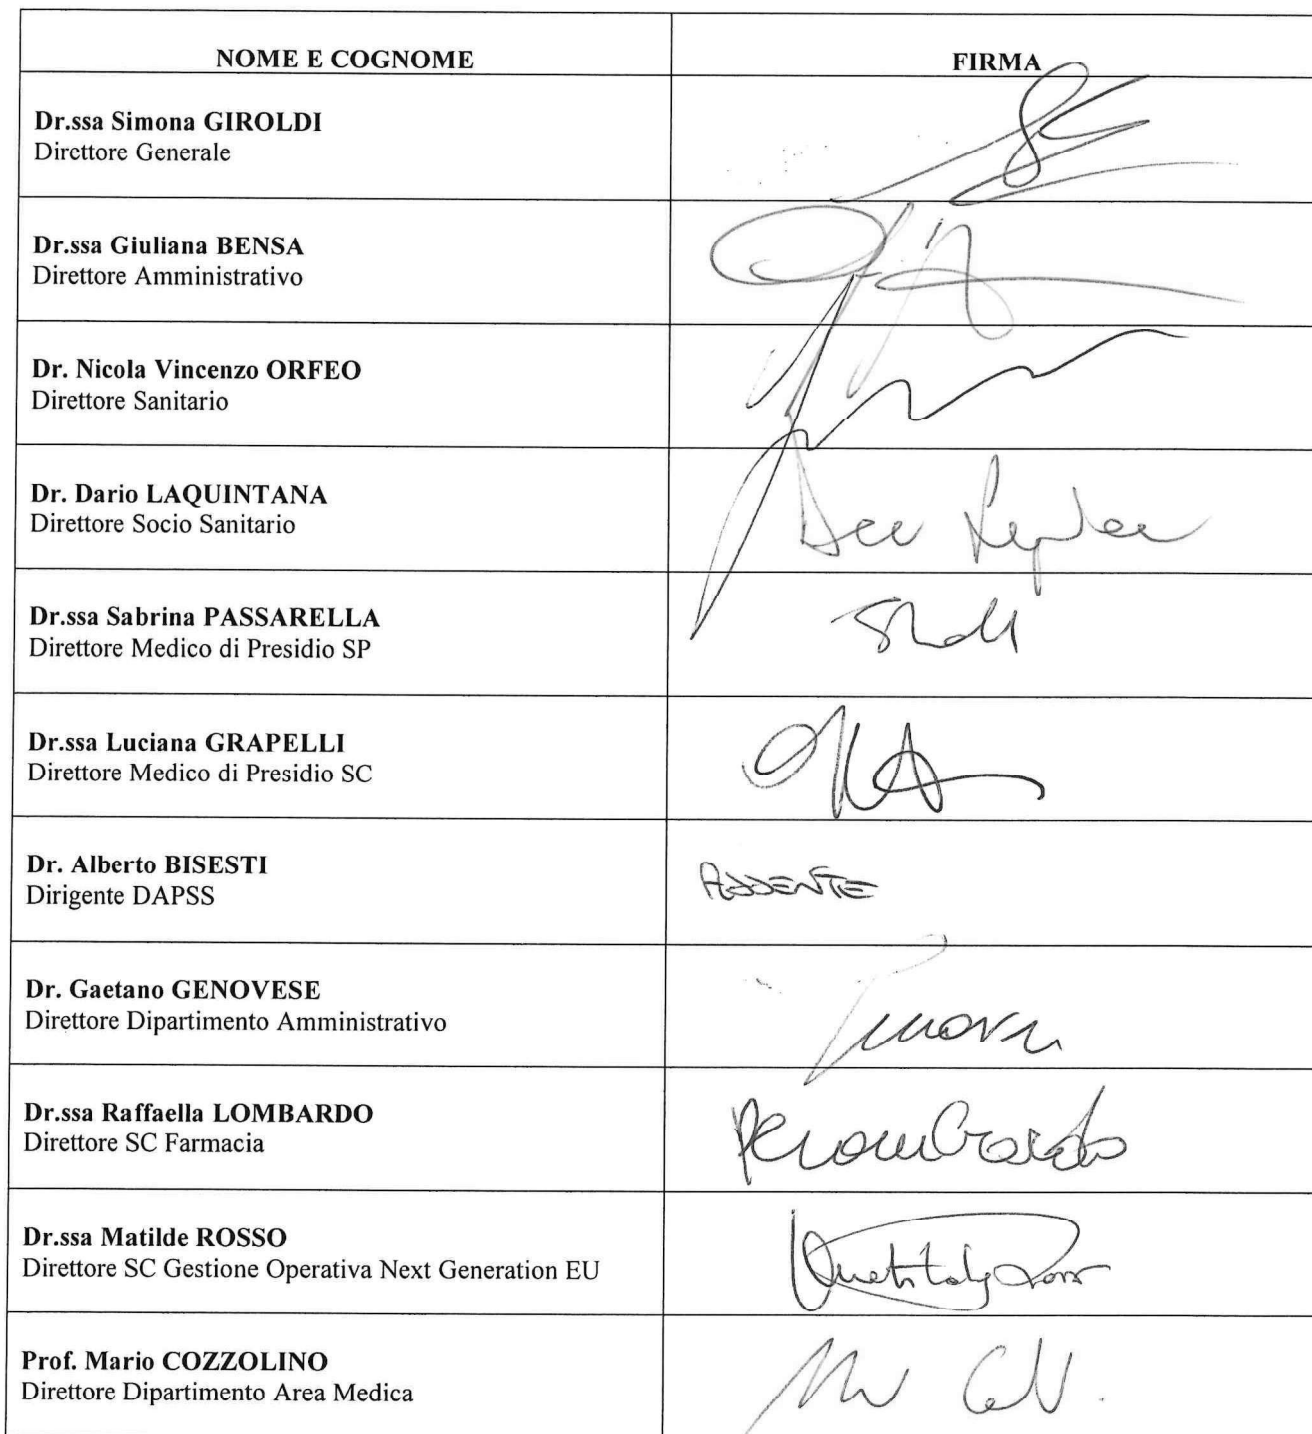 NOME E COGNOME
FIRMA
Dr.ssa Simona GIROLDI
Direttore Generale
Dr.ssa Giuliana BENSA
Direttore Amministrativo
Dr. Nicola Vincenzo ORFEO
Direttore Sanitario
Dr. Dario LAQUINTANA
Direttore Socio Sanitario
Dr.ssa Sabrina PASSARELLA
Direttore Medico di Presidio SP
Dr.ssa Luciana GRAPELLI
Direttore Medico di Presidio SC
Dr. Alberto BISESTI
Dirigente DAPSS
ASSENTE
Dr. Gaetano GENOVESE
Direttore Dipartimento Amministrativo
Dr.ssa Raffaella LOMBARDO
Direttore SC Farmacia
Dr.ssa Matilde ROSSO
Direttore SC Gestione Operativa Next Generation EU
Prof. Mario COZZOLINO
Direttore Dipartimento Area Medica